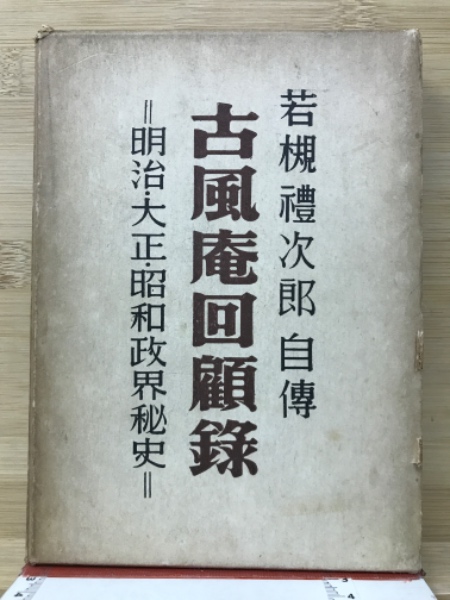 若槻禮次郎 自傳
古風庵回顧錄
＝明治・大正・昭和政界秘史＝